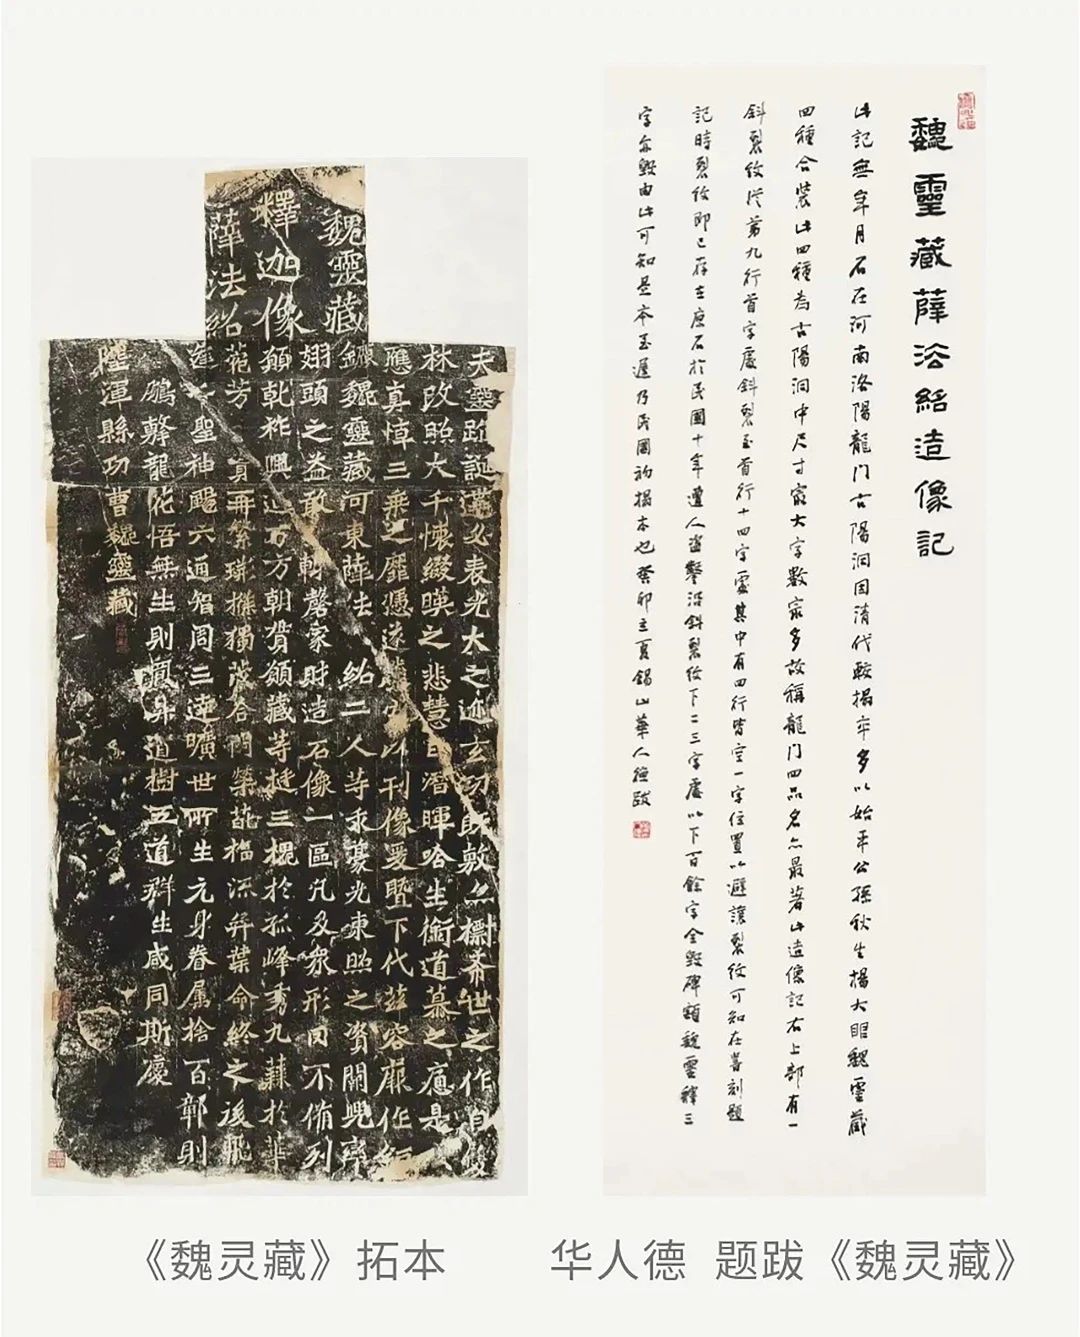 魏靈藏
釋迦像
薛法紹
夫靈跡誕遘必表光大之迹玄功既敷亦標希世之作自雙
林改照大千懷綴暎之悲慧日潛暉哈生銜道慕之痛是
應真悼三乘之靡憑遂騰空以刊像爰暨下代茲容厥作鉅
鹿魏靈藏河東薛法紹二人等求豪光東照之資闕兜率
翅頭之益敢輒罄家財造石像一區凡及眾形罔不備列
願乾祚興延万方朝貢願藏等挺三槐於孤峰秀九蕀於華
菀芳實再繁荊條獨茂合門榮葩福流奕葉命終之後飛
逢千聖神颺六通智周三達曠世所生元身眷屬捨百鄣則
鵬擊龍花悟無生則飄昇道樹五道群生咸同斯慶
陸渾縣功曹魏靈藏
魏靈藏薛法紹造像記
此記無年月石在河南洛陽龍门古陽洞因清代較搨率多以始平公孫秋生楊大眼魏靈藏
四種合裝此四種為古陽洞中尺寸宼大字數宼多故稱龍门四品名亦最著此造像記右上部有一
斜裂紋從第九行首字處斜裂至首行十四字處其中有四行皆空一字位置以避讓裂紋可知在書刻題
記時裂紋即已存在原石於民國十年遭人盜鑿沿斜裂紋下二三字處以下百餘字全毀碑額魏靈釋三
字亦毀由此可知是本至遲乃民國初搨本也癸卯立夏錫山華人德跋
《魏灵藏》拓本
华人德 题跋《魏灵藏》